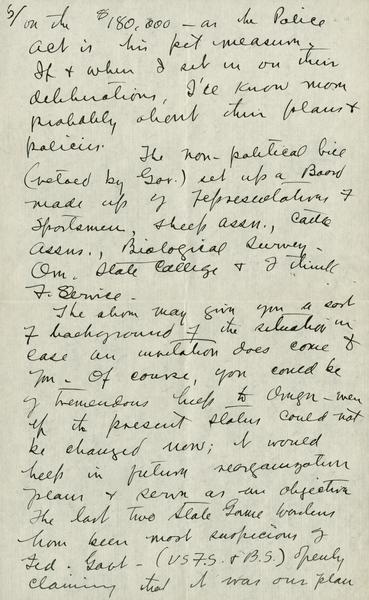 5/ on the $180,000 - as the Police
Act is his pet measure.
If & when I sit in on their
deliberations, I'll know more
probably about their plans &
policies.
The non-political bill
(vetoed by Gov.) set up a Board
made up of representatives of
Sportsmen, Sheep Assn., Cattle
Assns., Biological Survey -
Ore. State College & I think
F. Service -
The above may give you a sort
of background of the situation in
case an invitation does come to
you - Of course, you could be
of tremendous help to Oregon - even
if the present status could not
be changed now; it would
help in future reorganization
plans & serve as an objective
The last two State Game Wardens
have been most suspicious of
Fed. Govt - (USFS. & B.S.) openly
claiming that it was our plan